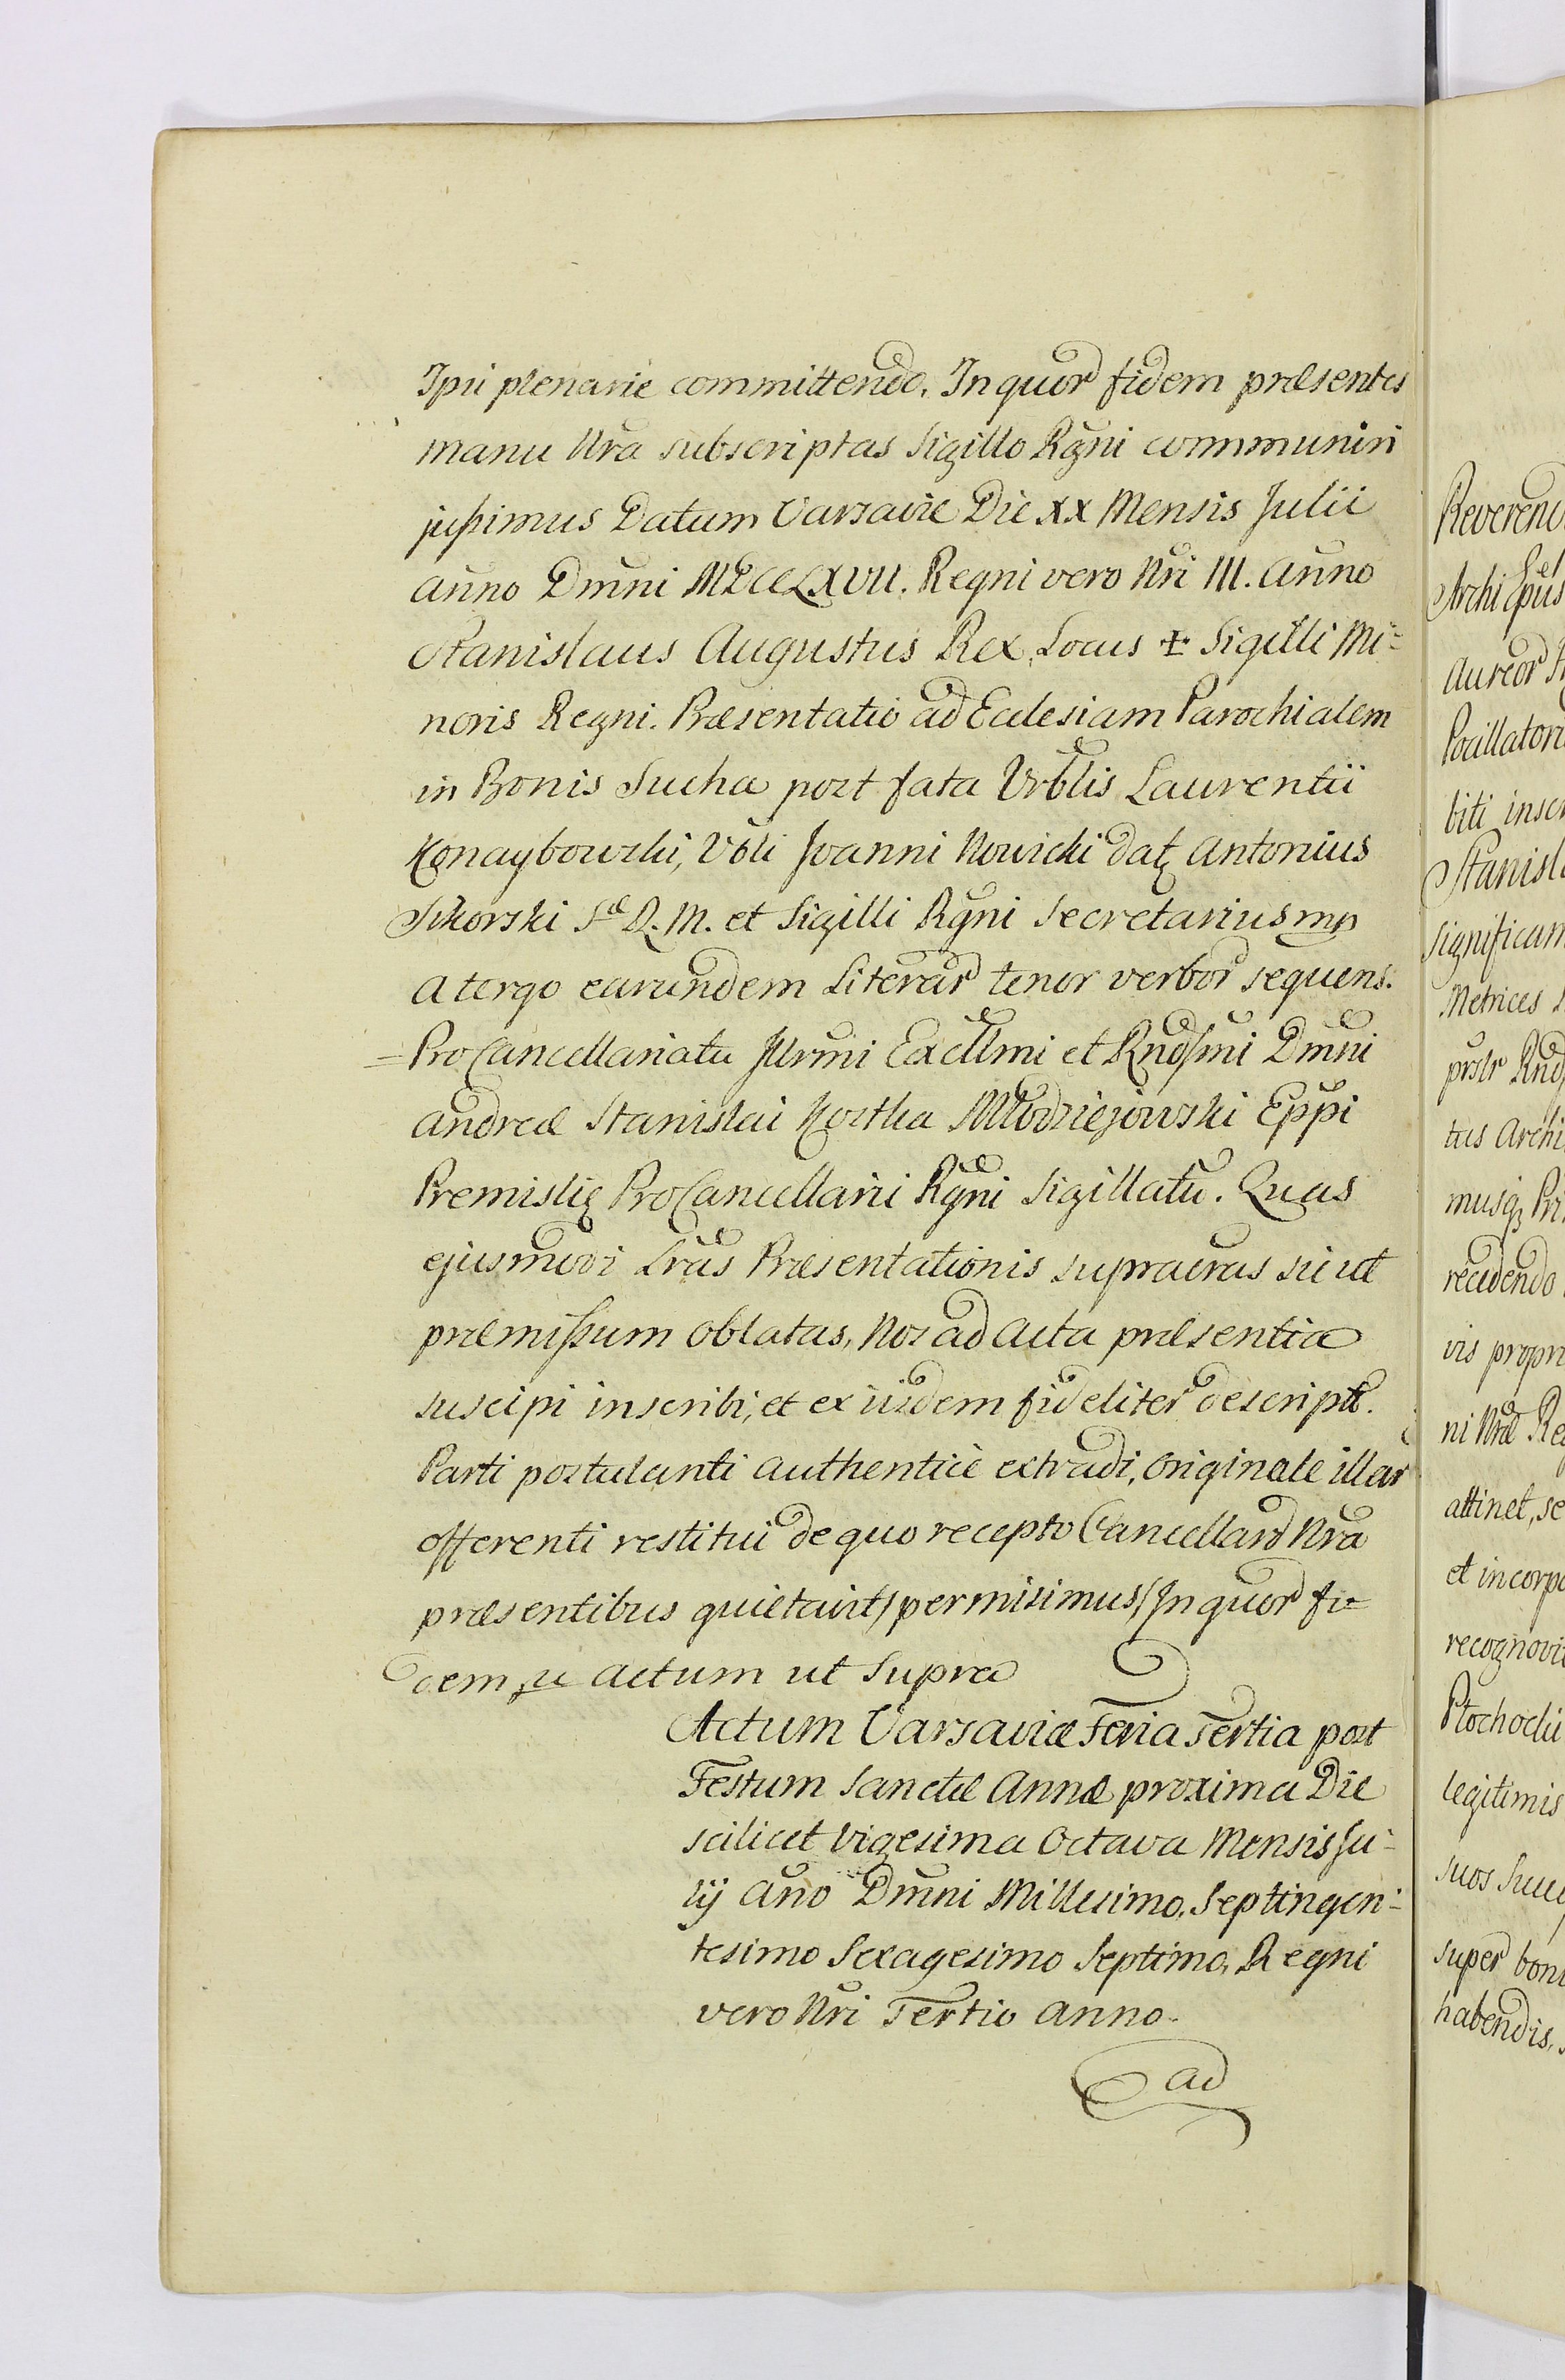 Ipsi plenarie committendo. In quor fidem præsentes
manu Nra subscriptas Sigillo Rgni communiri
jussimus Datum Varsaviæ Die XX Mensis Julii
Anno Dmni MDCCLXVII. Regni vero Nri III. Anno
Stanislaus Augustus Rex, Locus ✠ Sigilli Mi=
noris Regni. Præsentatio ad Ecclesiam Parochialem
in Bonis Sucha post fata Vrblis Laurentii
Vbli Joanni Nowicki datz Antonius
Sikorski Sæ R. M. et Sigilli Rgni Secretarius mp
A tergo earundem Literar tenor verbor sequens.
=ProCancellariatu Illrmi Excllmi et Rndsmi Dmni
Andreæ Stanislai Kostka Młodziejowski Eppi
Premisliæ ProCancellarii Rgni Sigillatu. Quas
ejusmodi Lras Præsentationis supraeras sicut
præmissum oblatas, Nos ad Acta præsentia
suscipi inscribi, et ex iisdem fideliter descript.
Parti postulanti authenticè extradi, originale illar
offerenti restitui de quo recepto Cancellard Nra
præsentibus quietavit, permisimus, In quor fi=
dem &c Actum ut Supra
Actum Varsaviæ Feria Tertia post
Festum Sanctæ Annæ proxima Die
scilicet Vigesima Octava Mensis Ju=
lij Ano Dmni Millesimo. Septingen=
tesimo Sexagesimo Septimo, Regni
vero Nri Tertio Anno.
ad
Reverend
Archi Epus
Aureor
Pocillatori
biti inscr
Stanisl
significam
Metrices
prslr Rnds
tus Archi
musqz Pri
recedendo
vis propri
ni Nræ Re
attinet, se
et incorpo
recognovit
Plochocki
legitimis
suos Succ
super boni
habendis.